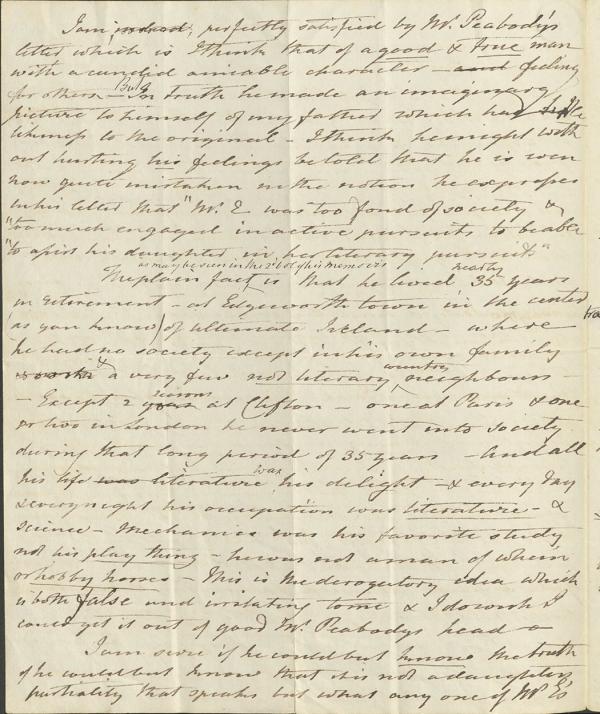 I am indeed, perfectly satisfied by Mr. Peabody's
letter which is I think that of a good & true man
with a candid amiable character – and feeling
for others – But In truth he made an imaginary
picture to himself of my father which has little
likeness to the original – I think he might with
out hurting his feelings be told that he is even
now quite mistaken in the notion he expresses
in his letter that "Mr. E. was too fond of society &
"too much engaged in active pursuits to be able
"to assist his daughter in her literary pursuits"
as may be seen in the 2d vol of his memoirs
The plain fact is that he lived nearly 35 years
in retirement – at Edgeworthstown in the center
(as you know) of ultimate Ireland – where
he had no society except in his own family
& a very few not literary country neighbours –
– Except 2 years seasons at Clifton – one at Paris & one
or two in London he never went into society
during that long period of 35 years – And all
his life was literature was his delight – & every day
& every night his occupation was literature – &
science – Mechanics was his favorite study
not his play thing – he was not a man of whim
or hobby horses – This is the derogatory idea which
is both false and irritating to me & I do wish I
could get it out of good Mr. Peabodys head –
I am sure if he could but know the truth
if he could but know that it is not a daughters
partiality that speaks but what any one of Mr. E's